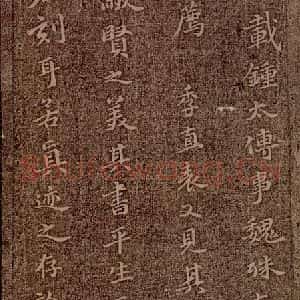 載鍾太傅事魏殊
薦季直表又見其
蔽賢之美其書平生
刻耳若真迹之存